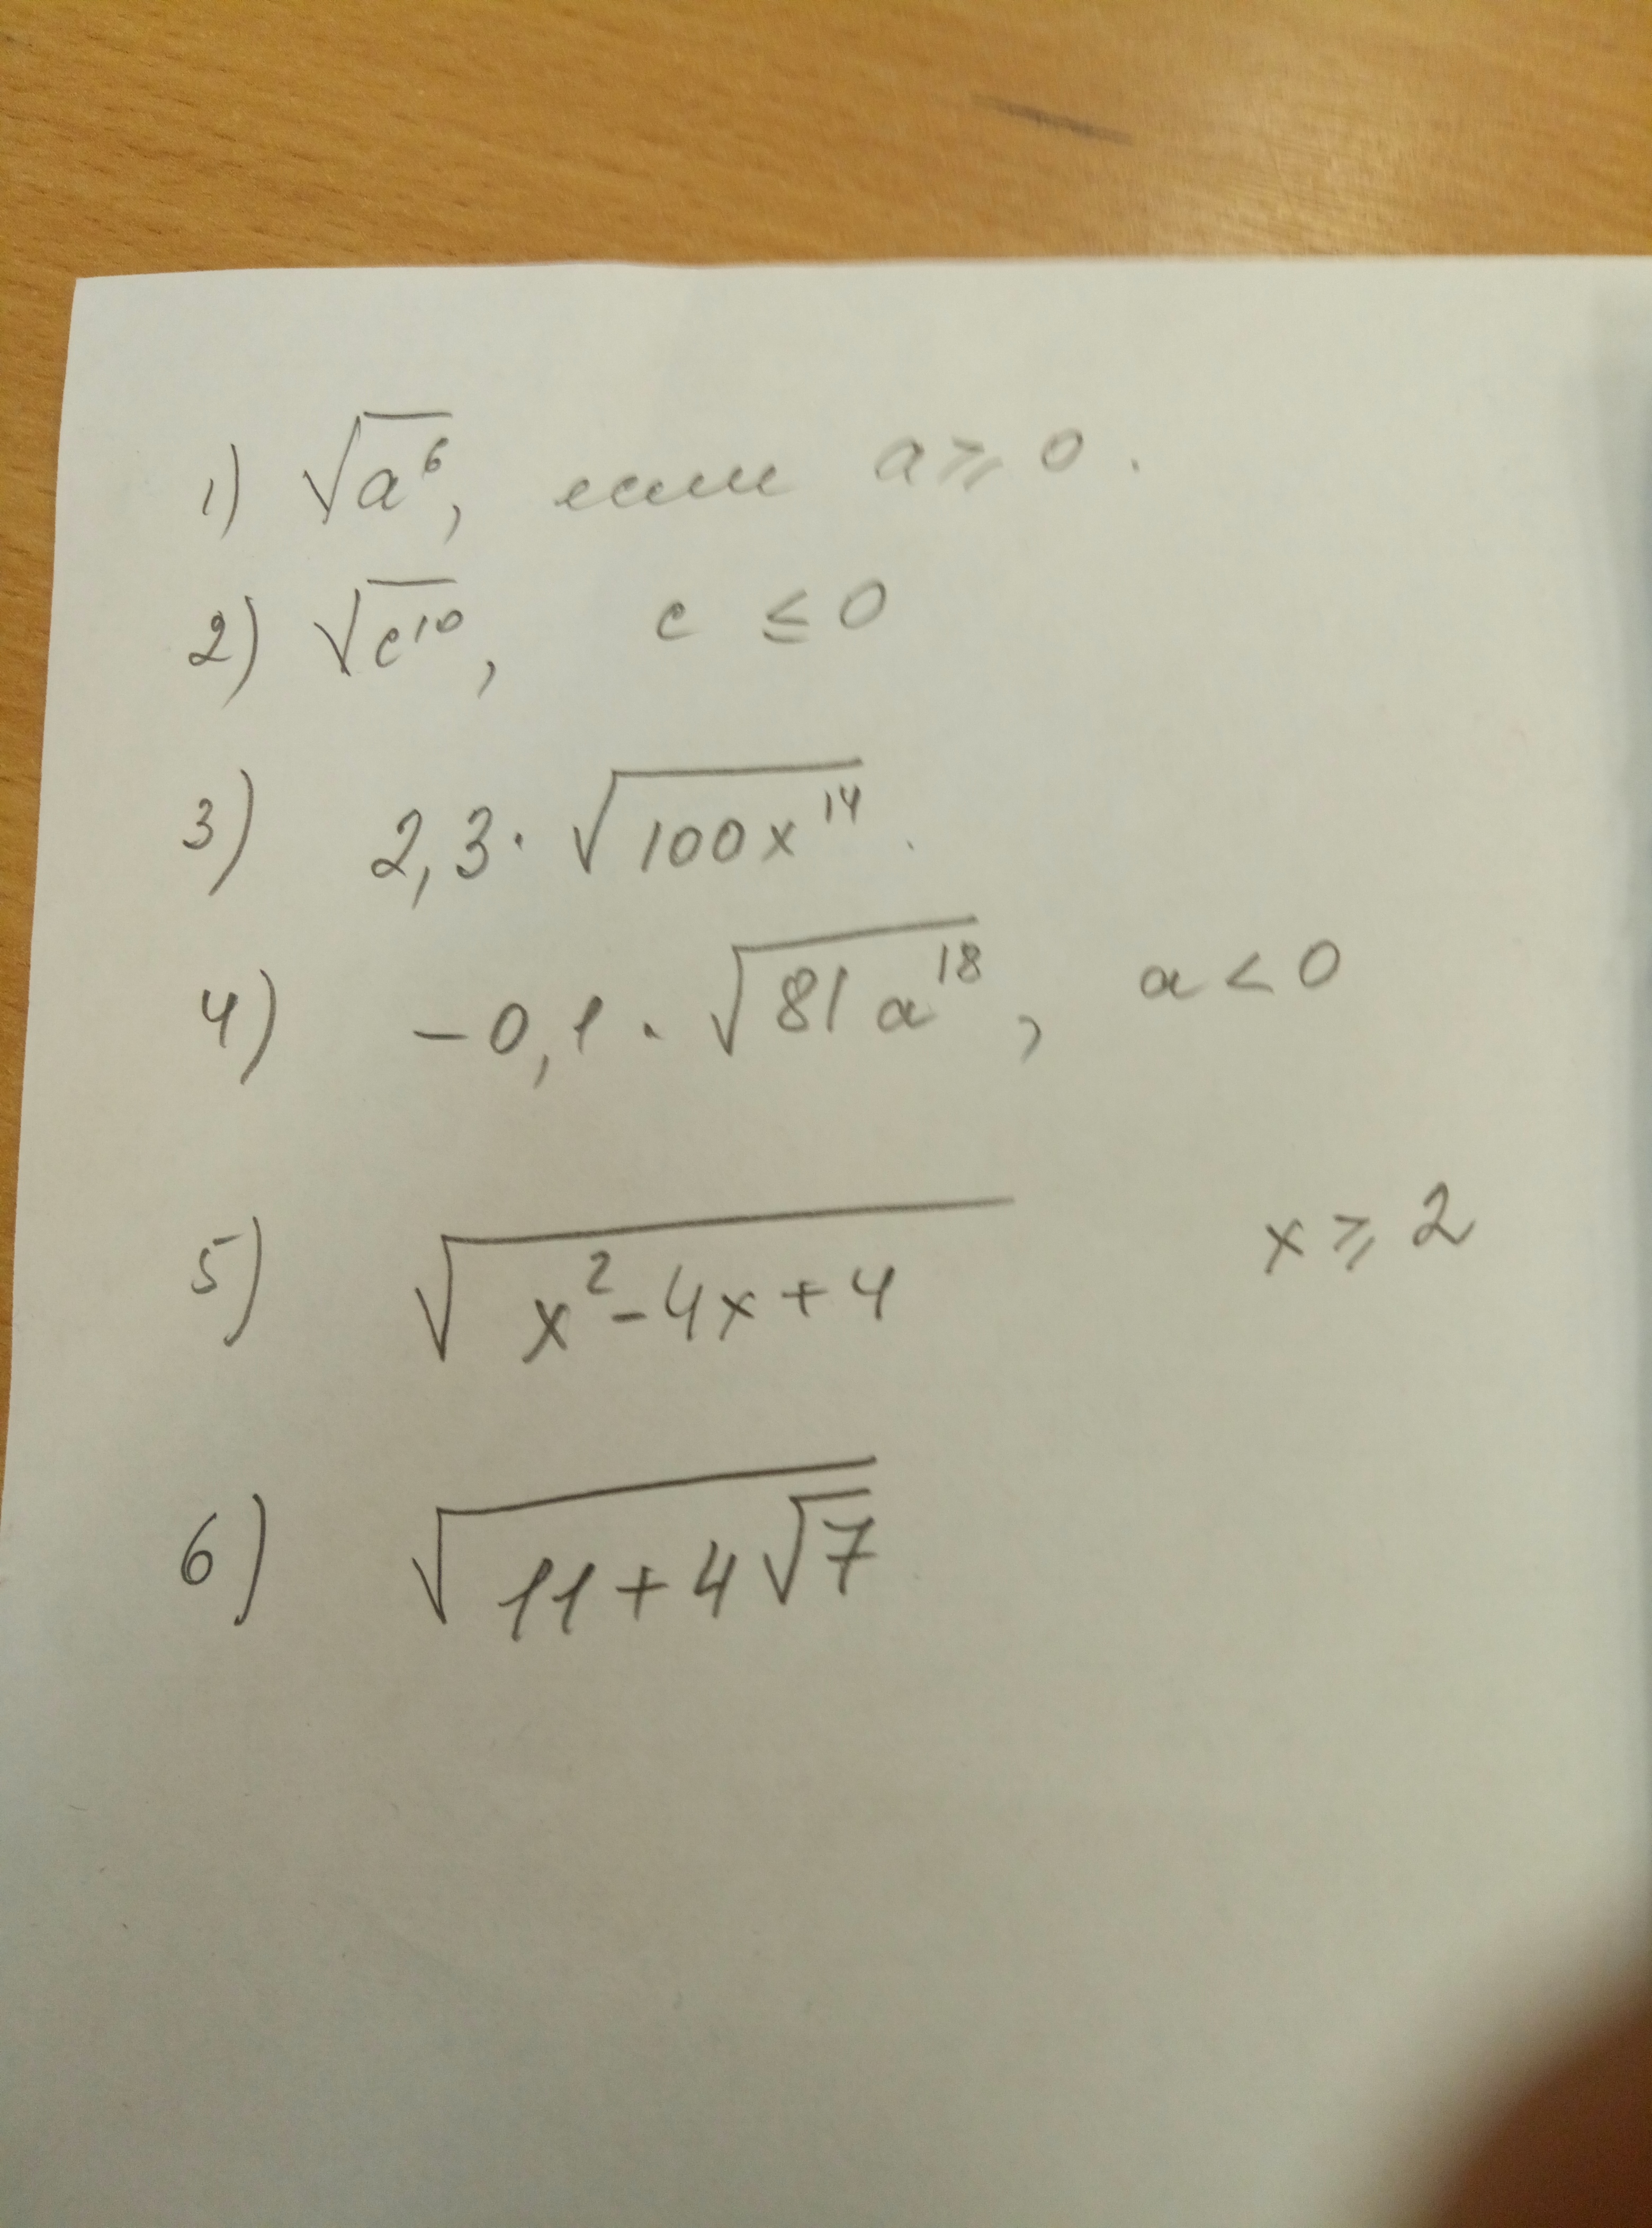 1) √a⁶, если a ⩾ 0.
2) √c¹⁰, c ≤ 0
3) 2,3·√100x¹⁴.
4) -0,1·√81a¹⁸, a < 0
5) √x²-4x+4 x ⩾ 2
6) √11+4√7